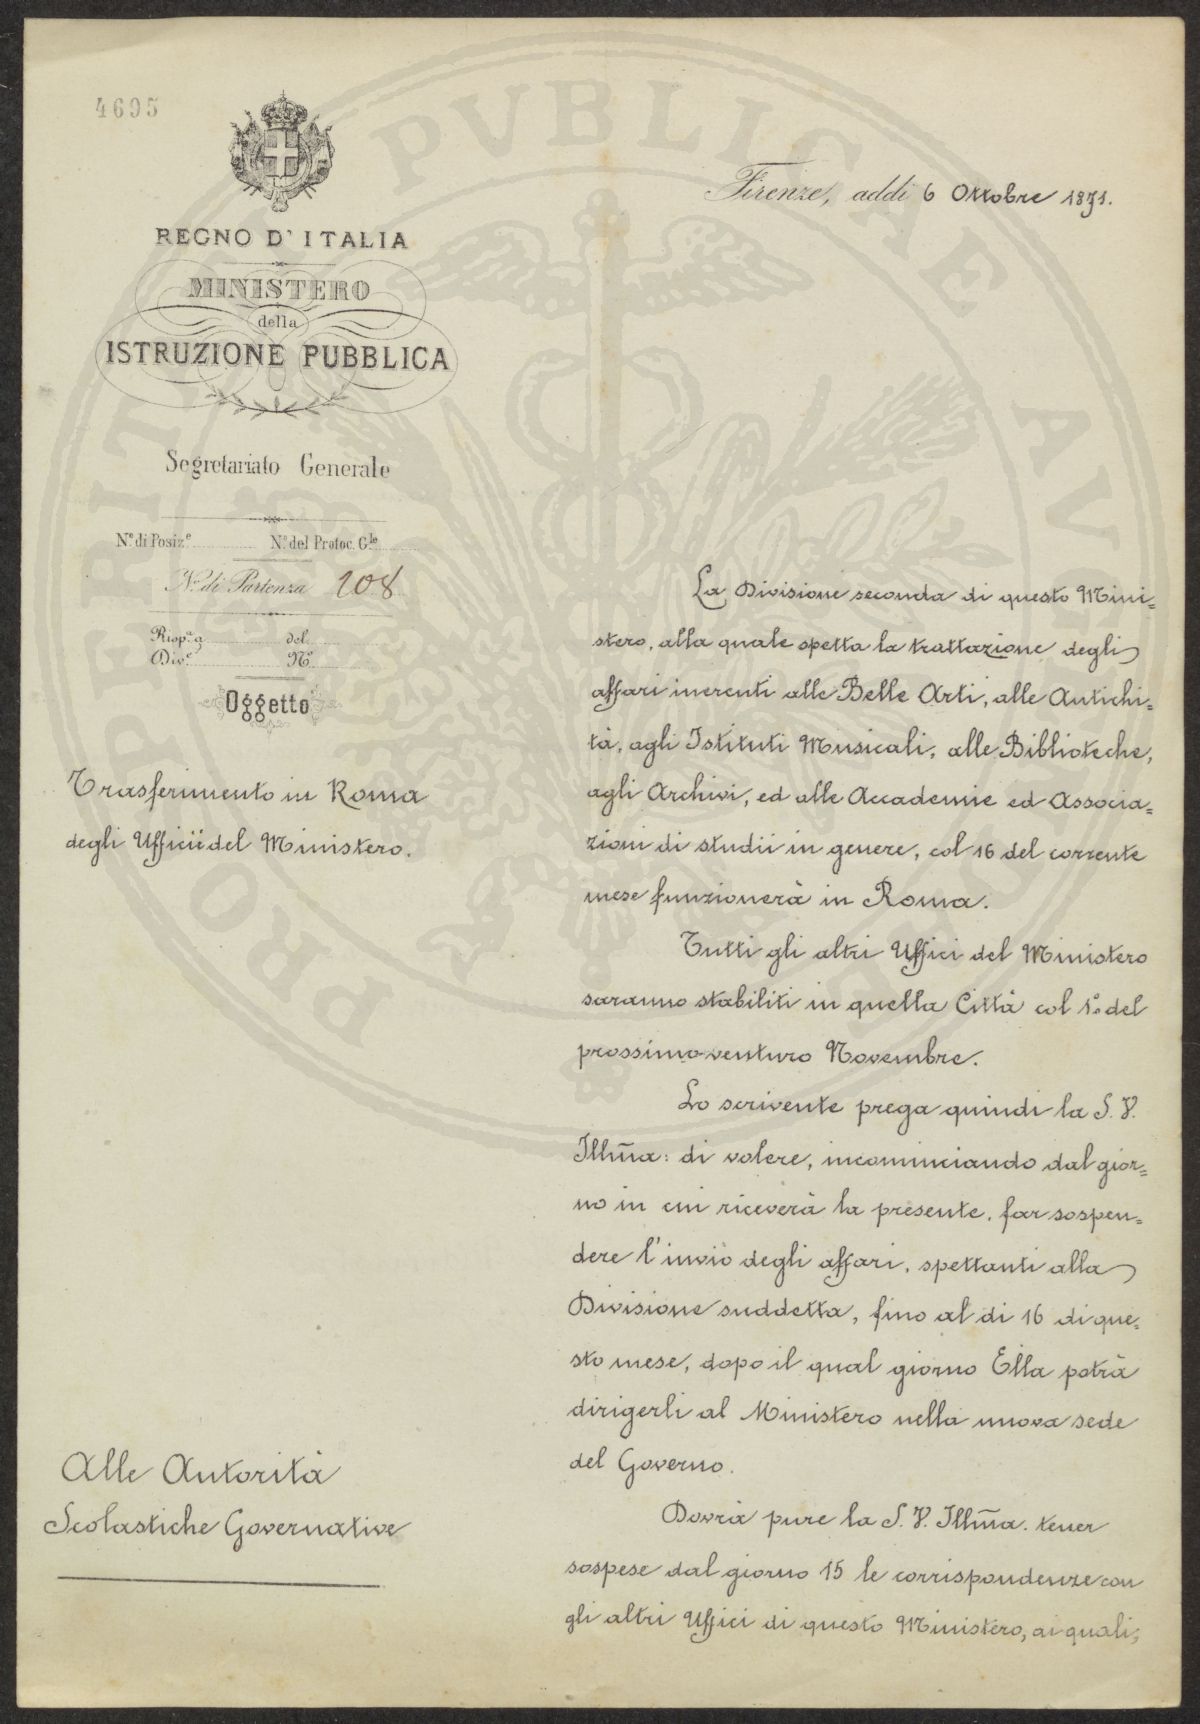 4695
REGNO D'ITALIA
MINISTERO
della
ISTRUZIONE PUBBLICA
Segretariato Generale
N.º di Posiz.e N.º del Protoc. G.le
N.º di Partenza 208
Risp.a a del
Div.e N.º
Oggetto
Trasferimento in Roma
degli Ufficii del Ministero.
Alle Autorità
Scolastiche Governative
Firenze, addì 6 Ottobre 1871.
La Divisione seconda di questo Mini=
stero, alla quale spetta la trattazione degli
affari inerenti alle Belle Arti, alle Antichi=
tà, agli Istituti Musicali, alle Biblioteche,
agli Archivi, ed alle Accademie ed Associa=
zioni di studii in genere, col 16 del corrente
mese funzionerà in Roma.
Tutti gli altri Uffici del Ministero
saranno stabiliti in quella Città col 1.º del
prossimo venturo Novembre.
Lo scrivente prega quindi la S. V.
Illm̃a: di volere, incominciando dal gior=
no in cui riceverà la presente, far sospen=
dere l'invio degli affari, spettanti alla
Divisione suddetta, fino al dì 16 di que=
sto mese, dopo il qual giorno Ella potrà
dirigerli al Ministero nella nuova sede
del Governo.
Dovrà pure la S. V. Illm̃a. tener
sospese dal giorno 15 le corrispondenze con
gli altri Uffici di questo Ministero, ai quali,